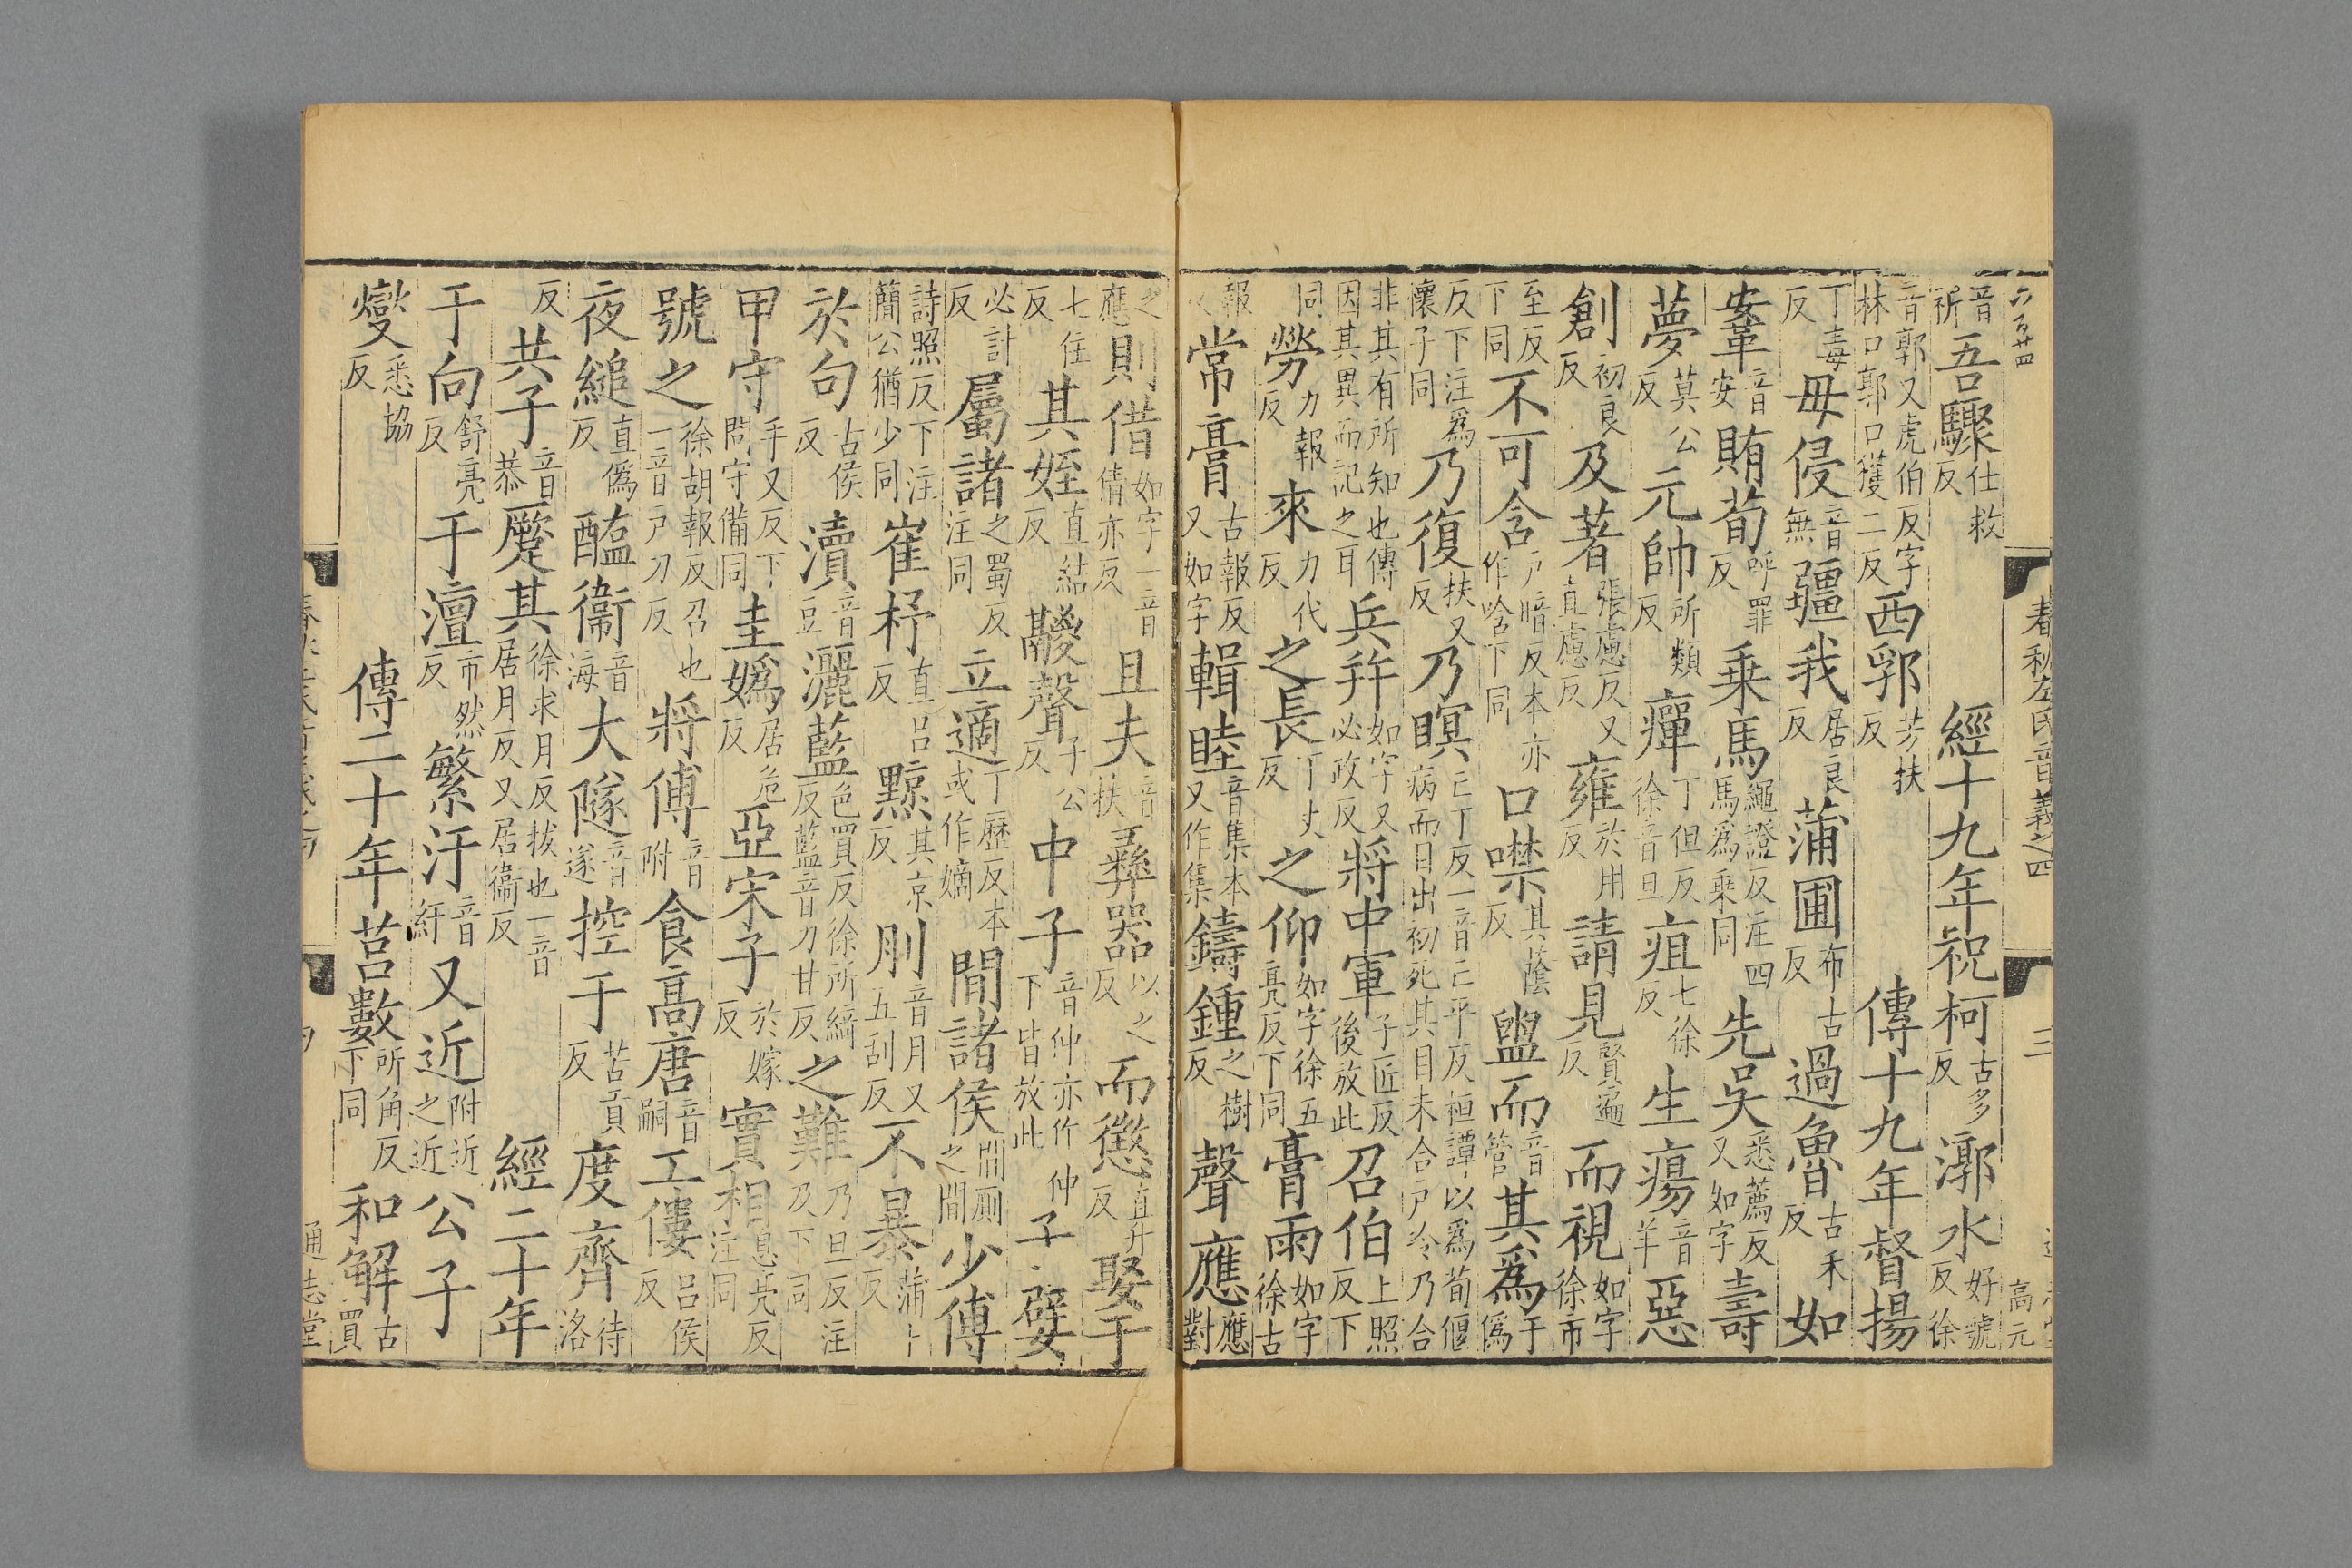 六百廿四 春秋左氏音義之四 三 高元
音祈吾驟仕救反 經十九年祝柯古多反漷水好虢反徐
音郭又虎伯反字林口郭口獲二反西郛芳扶反 傳十九年督揚
丁毒反毋侵音無疆我居良反蒲圃布古反過魯古禾反如
鞌音安賄荀呼罪反乗馬繩證反注四馬爲乗同先吳悉薦反又如字壽
夢莫公反元帥所類反癉丁但反徐音旦疽七徐反生瘍音羊惡
創初良反及著張慮反又直慮反雍於用反請見賢遍反而視如字徐市
至反下同不可含戶暗反本亦作唅下同口噤其蔭反盥而音管其爲于僞
反下注爲懷子同乃復扶又反乃瞑亡丁反一音亡平反桓譚以爲荀偃病而目出初死其目未合尸冷乃合
非其有所知也傳因其異而記之耳兵幷如字又必政反將中軍子匠反後放此召伯上照反下
同勞力報反來力代反之長丁丈反之仰如字徐五亮反下同膏雨如字徐古
報反常膏古報反又如字輯睦音集本又作集鑄鍾之樹反聲應應對
之應則借如字一音倩亦反且夫音扶彝器以之反而懲直升反娶于
七住反其姪直結反鬷聲子公反中子音仲亦作仲下皆放此子嬖
必計反屬諸之蜀反注同立適丁歷反本或作嫡間諸侯間厠之間少傅
詩照反下注簡公猶少同崔杼直呂反黥其京反刖音月又五刮反不暴蒲卜反
於句古侯反瀆音豆灑藍色買反徐所綺反藍音力甘反之難乃旦反注及下同
甲守手又反下問守備同圭嬀居危反亞宋子於嫁反實相息亮反注同
號之徐胡報反召也一音戶刀反將傅音附食高唐音嗣工僂呂侯反
夜縋直僞反醢衞音海大隧音遂控于苦貢反度齊待洛
反共子音恭蹷其徐求月反拔也一音居月反又居衞反 經二十年
于向舒亮反于澶市然反繁汙音紆又近附近之近公子
燮悉協反 傳二十年莒數所角反下同和解古買
通志堂